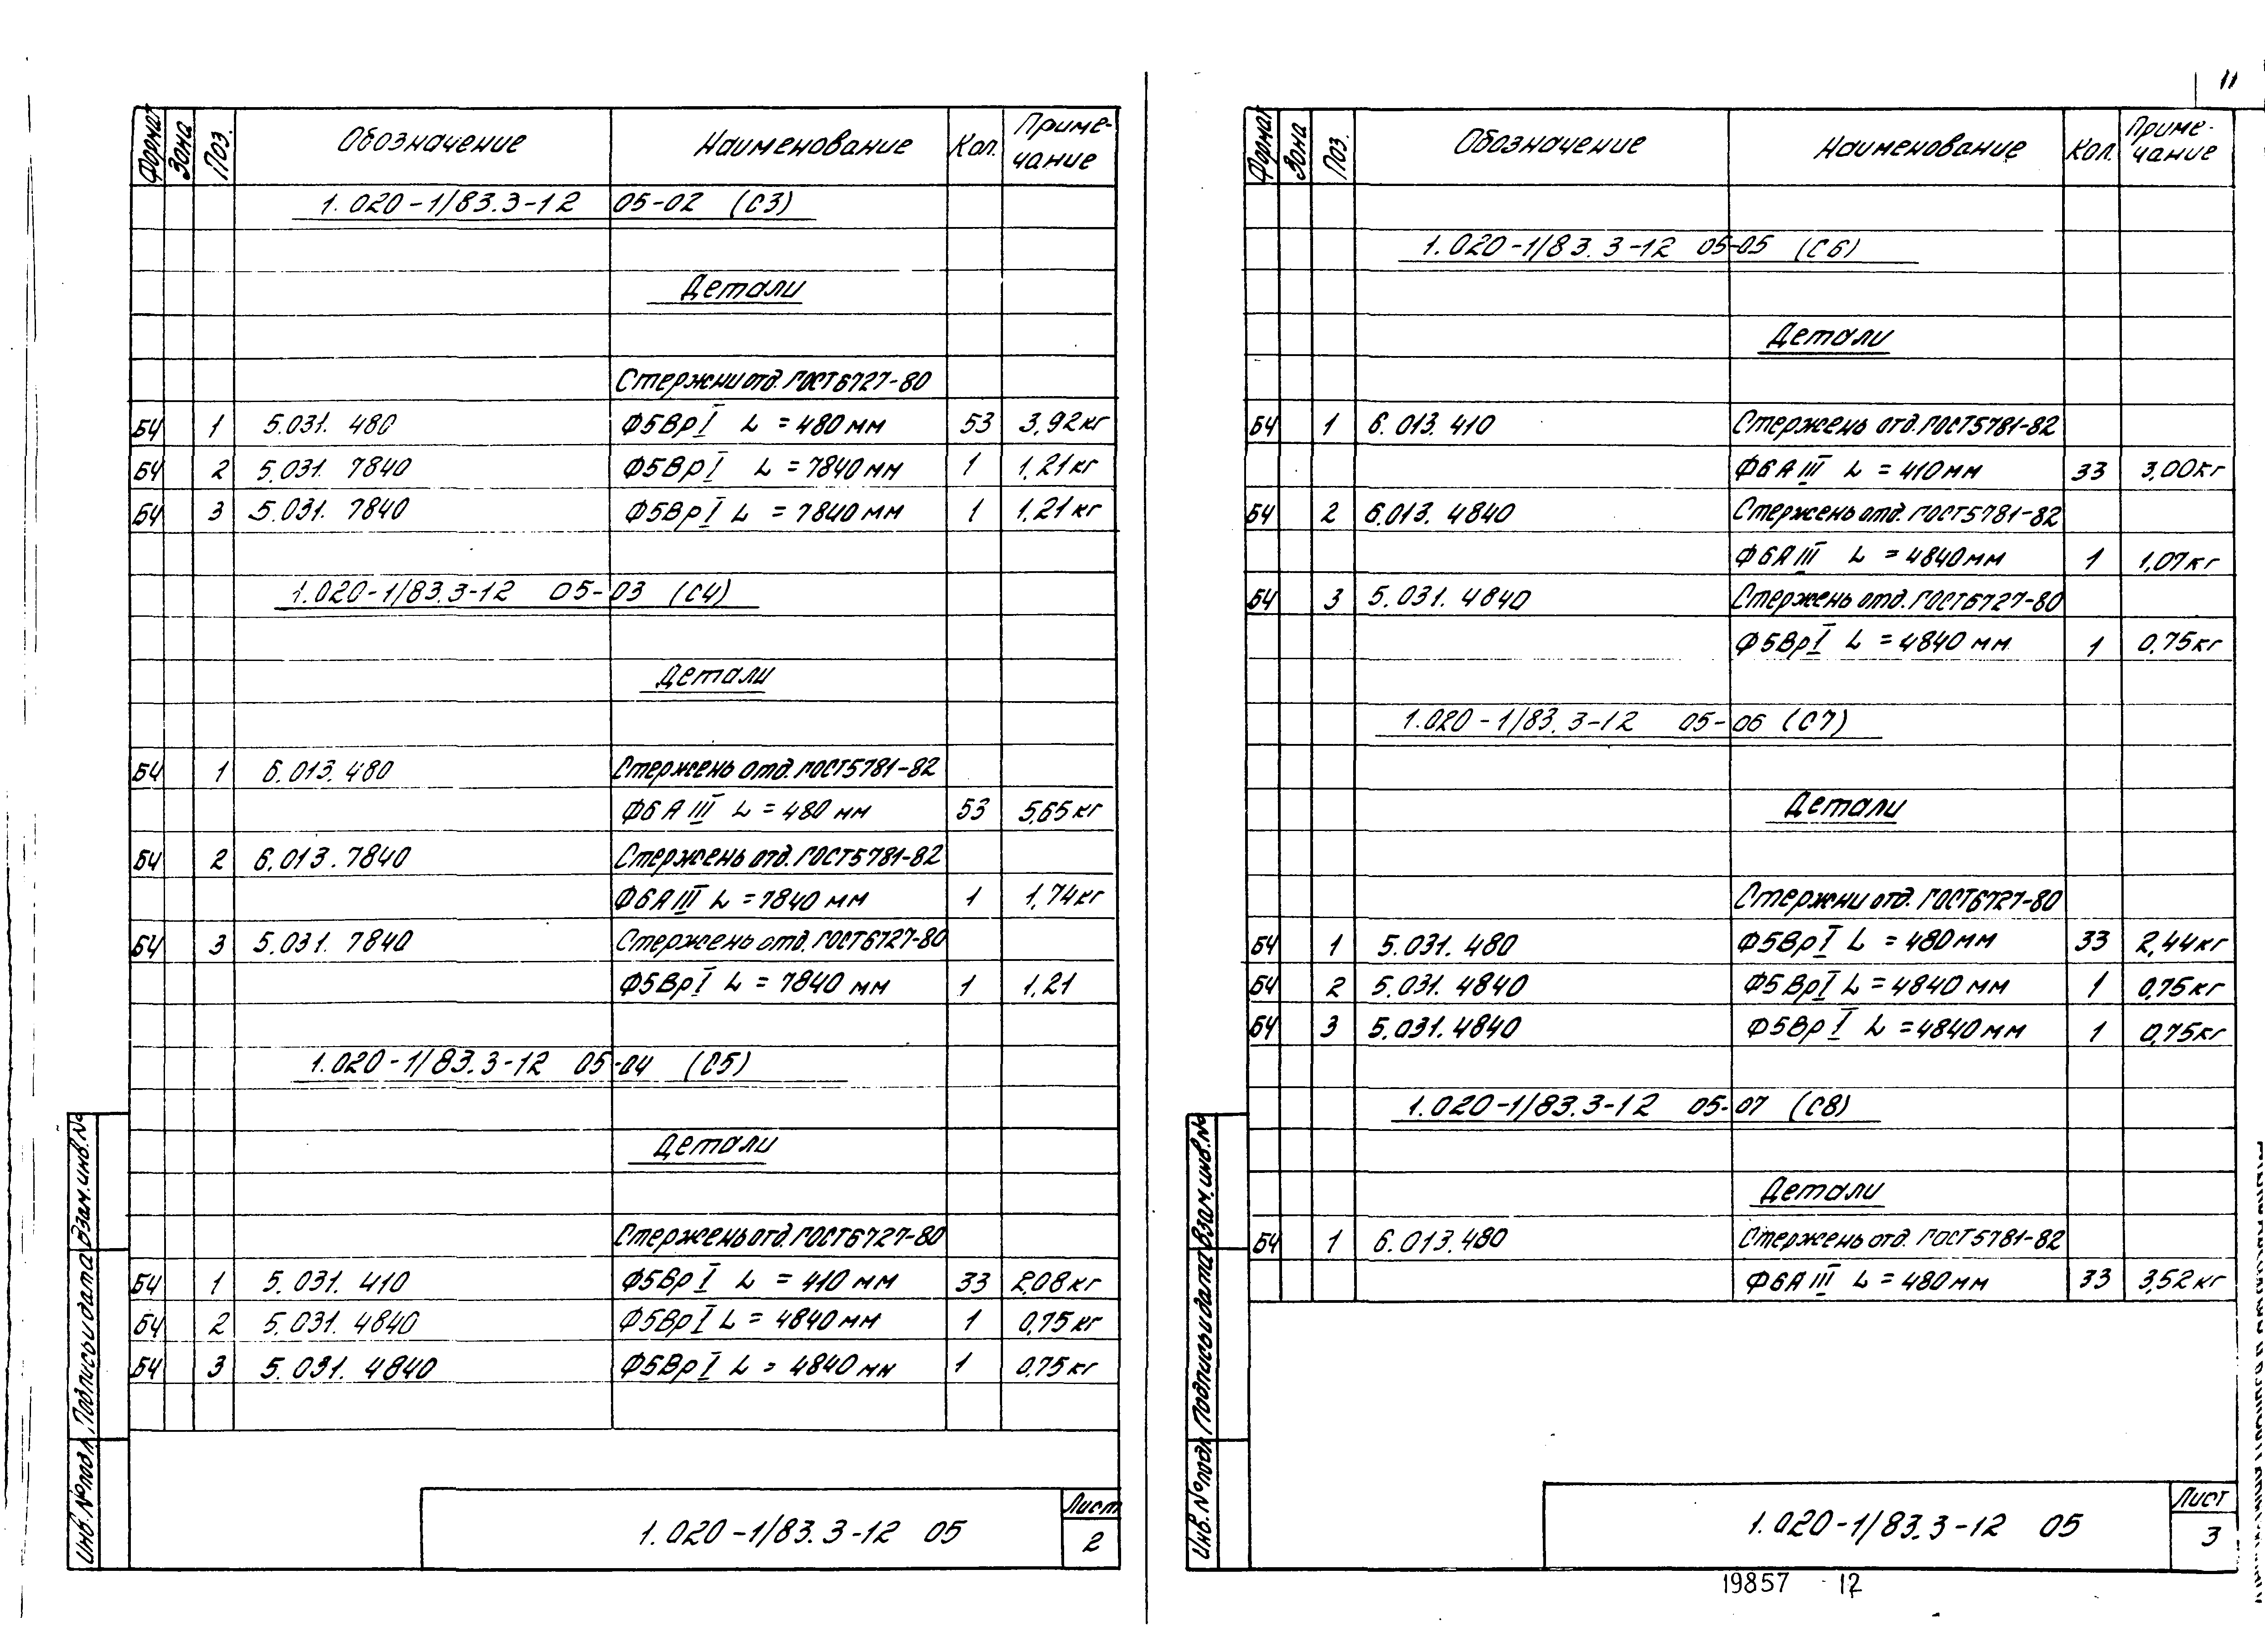 11
Формат Зона Поз. Обозначение Наименование Кол. Приме-
чание
1.020-1/83.3-12 05-02 (С3)
Детали
Стержни отд. ГОСТ6727-80
БЧ 1 5.031. 480 Ф5ВрI L = 480 мм 53 3,92кг
БЧ 2 5.031. 7840 Ф5ВрI L = 7840 мм 1 1,21кг
БЧ 3 5.031. 7840 Ф5ВрI L = 7840 мм 1 1,21кг
1.020-1/83.3-12 05-03 (С4)
Детали
БЧ 1 6.013.480 Стержень отд. ГОСТ5781-82
Ф6АIII L = 480 мм 53 5,65кг
БЧ 2 6.013.7840 Стержень отд. ГОСТ5781-82
Ф6АIII L = 7840 мм 1 1,74кг
БЧ 3 5.031. 7840 Стержень отд. ГОСТ6727-80
Ф5ВрI L = 7840 мм 1 1,21
1.020-1/83.3-12 05-04 (С5)
Детали
Стержень отд. ГОСТ6727-80
БЧ 1 5.031. 410 Ф5ВрI L = 410 мм 33 2,08кг
БЧ 2 5.031. 4840 Ф5ВрI L = 4840 мм 1 0,75кг
БЧ 3 5.031. 4840 Ф5ВрI L = 4840 мм 1 0,75кг
Инв.№подл. Подпись и дата Взам.инв.№
1.020-1/83.3-12 05
Лист
2
Формат Зона Поз. Обозначение Наименование Кол. Приме-
чание
1.020-1/83.3-12 05-05 (С6)
Детали
БЧ 1 6.013.410 Стержень отд. ГОСТ5781-82
Ф6АIII L = 410мм 33 3,00кг
БЧ 2 6.013. 4840 Стержень отд. ГОСТ5781-82
Ф6АIII L = 4840мм 1 1,07кг
БЧ 3 5.031. 4840 Стержень отд. ГОСТ6727-80
Ф5ВрI L = 4840 мм 1 0,75кг
1.020-1/83.3-12 05-06 (С7)
Детали
Стержни отд. ГОСТ6727-80
БЧ 1 5.031. 480 Ф5ВрI L = 480мм 33 2,44кг
БЧ 2 5.031. 4840 Ф5ВрI L = 4840 мм 1 0,75кг
БЧ 3 5.031. 4840 Ф5ВрI L = 4840 мм 1 0,75кг
1.020-1/83.3-12 05-07 (С8)
Детали
БЧ 1 6.013.480 Стержень отд. ГОСТ5781-82
Ф6АIII L = 480мм 33 3,52кг
Инв.№подл. Подпись и дата Взам.инв.№
1.020-1/83.3-12 05
Лист
3
19857 12